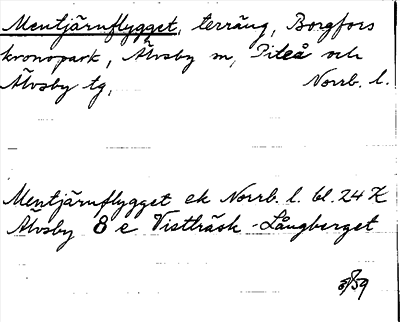 Mentjärnflygget, terräng, Borgfors
kronopark, Älvsby m, Piteå och
Älvsby tg, Norrb. l.
Mentjärnflygget ek Norrb. l. bl. 24 K
Älvsby 8 e Vistträsk - Långberget